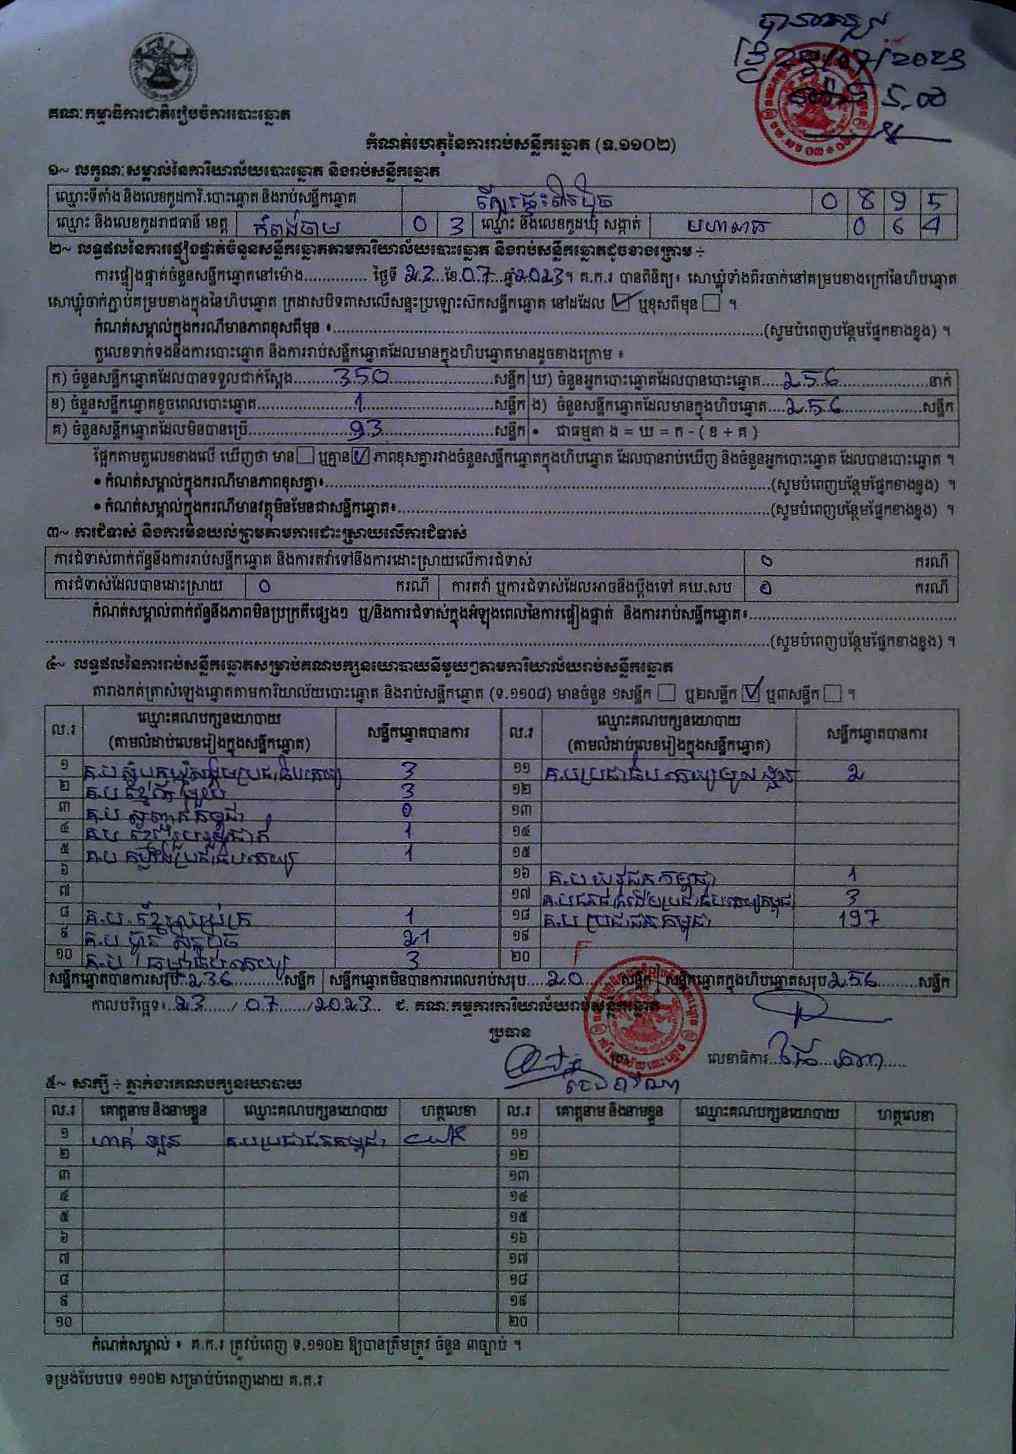 គណៈកម្មាធិការជាតិរៀបចំការបោះឆ្នោត
កំណត់ហេតុនៃការរាប់សន្លឹកឆ្នោត (ទ.១១០២)
១~ លក្ខណៈសម្គាល់នៃការិយាល័យបោះឆ្នោត និងរាប់សន្លឹកឆ្នោត
ឈ្មោះទីតាំង និងលេខកូដការិ.បោះឆ្នោត និងរាប់សន្លឹកឆ្នោត 0 8 9 5
ឈ្មោះ និងលេខកូដរាជធានី ខេត្ត កំពង់ចាម 0 3 ឈ្មោះ និងលេខកូដឃុំ សង្កាត់ 0 6 4
២~ លទ្ធផលនៃការផ្ទៀងផ្ទាត់ចំនួនសន្លឹកឆ្នោតតាមការិយាល័យបោះឆ្នោត និងរាប់សន្លឹកឆ្នោតដូចខាងក្រោម ÷
ការផ្ទៀងផ្ទាត់ចំនួនសន្លឹកឆ្នោតនៅម៉ោង.............. ថ្ងៃទី 23 ខែ 07 ឆ្នាំ 2023 ។ គ.ក.រ បានពិនិត្យ៖ សោឃ្លុំទាំងពីរចាក់នៅគម្របខាងក្រៅនៃហិបឆ្នោត
សោឃ្លុំចាក់ភ្ជាប់គម្របខាងក្នុងនៃហិបឆ្នោត ក្រដាសបិទពាសលើសន្ទះប្រឡោះស៊កសន្លឹកឆ្នោត នៅដដែល ☑ ឬខុសពីមុន ☐ ។
កំណត់សម្គាល់ក្នុងករណីមានភាពខុសពីមុន ៖..............(សូមបំពេញបន្ថែមផ្នែកខាងខ្នង) ។
តួលេខទាក់ទងនឹងការបោះឆ្នោត និងការរាប់សន្លឹកឆ្នោតដែលមានក្នុងហិបឆ្នោតមានដូចខាងក្រោម ៖
ក) ចំនួនសន្លឹកឆ្នោតដែលបានទទួលជាក់ស្តែង 350 សន្លឹក ឃ) ចំនួនអ្នកបោះឆ្នោតដែលបានបោះឆ្នោត 256 នាក់
ខ) ចំនួនសន្លឹកឆ្នោតខូចពេលបោះឆ្នោត 1 សន្លឹក ង) ចំនួនសន្លឹកឆ្នោតដែលមានក្នុងហិបឆ្នោត 256 សន្លឹក
គ) ចំនួនសន្លឹកឆ្នោតដែលមិនបានប្រើ 93 សន្លឹក • ជាធម្មតា ង = ឃ = ក - ( ខ + គ )
ផ្អែកតាមតួលេខខាងលើ ឃើញថា មាន ☐ ឬគ្មាន ☑ ភាពខុសគ្នារវាងចំនួនសន្លឹកឆ្នោតក្នុងហិបឆ្នោត ដែលបានរាប់ឃើញ និងចំនួនអ្នកបោះឆ្នោត ដែលបានបោះឆ្នោត ។
• កំណត់សម្គាល់ក្នុងករណីមានភាពខុសគ្នា៖..............(សូមបំពេញបន្ថែមផ្នែកខាងខ្នង) ។
• កំណត់សម្គាល់ក្នុងករណីមានវត្ថុមិនមែនជាសន្លឹកឆ្នោត៖..............(សូមបំពេញបន្ថែមផ្នែកខាងខ្នង) ។
៣~ ការជំទាស់ និងការមិនយល់ព្រមតាមការដោះស្រាយលើការជំទាស់
ការជំទាស់ពាក់ព័ន្ធនឹងការរាប់សន្លឹកឆ្នោត និងការតវ៉ាទៅនឹងការដោះស្រាយលើការជំទាស់ 0 ករណី
ការជំទាស់ដែលបានដោះស្រាយ 0 ករណី ការតវ៉ា ឬការជំទាស់ដែលអាចនឹងប្តឹងទៅ គឃ.សប 0 ករណី
កំណត់សម្គាល់ពាក់ព័ន្ធនឹងភាពមិនប្រក្រតីផ្សេងៗ ឬ/និងការជំទាស់ក្នុងអំឡុងពេលនៃការផ្ទៀងផ្ទាត់ និងការរាប់សន្លឹកឆ្នោត៖..............
..............(សូមបំពេញបន្ថែមផ្នែកខាងខ្នង) ។
៤~ លទ្ធផលនៃការរាប់សន្លឹកឆ្នោតសម្រាប់គណបក្សនយោបាយនីមួយៗតាមការិយាល័យរាប់សន្លឹកឆ្នោត
តារាងកត់ត្រាសំឡេងឆ្នោតតាមការិយាល័យបោះឆ្នោត និងរាប់សន្លឹកឆ្នោត (ទ.១១០៨) មានចំនួន ១សន្លឹក ☐ ឬ២សន្លឹក ☑ ឬ៣សន្លឹក ☐ ។
ល.រ ឈ្មោះគណបក្សនយោបាយ (តាមលំដាប់លេខរៀងក្នុងសន្លឹកឆ្នោត) សន្លឹកឆ្នោតបានការ ល.រ ឈ្មោះគណបក្សនយោបាយ (តាមលំដាប់លេខរៀងក្នុងសន្លឹកឆ្នោត) សន្លឹកឆ្នោតបានការ
១ 3 ១១ គ.ប ប្រជាធិបតេយ្យមូលដ្ឋាន 2
២ គ.ប ខ្មែរតែមួយ 3 ១២
៣ 0 ១៣
៤ គ.ប ខ្មែររួបរួមជាតិ 1 ១៤
៥ 1 ១៥
៦ ១៦ គ.ប យុវជនកម្ពុជា 1
៧ ១៧ 3
៨ គ.ប 1 ១៨ គ.ប ប្រជាជនកម្ពុជា 197
៩ គ.ប ហ៊្វុនស៊ិនប៉ិច 21 ១៩
១០ 3 ២០
សន្លឹកឆ្នោតបានការសរុប 236 សន្លឹក សន្លឹកឆ្នោតមិនបានការពេលរាប់សរុប 20 សន្លឹក សន្លឹកឆ្នោតក្នុងហិបឆ្នោតសរុប 256 សន្លឹក
កាលបរិច្ឆេទ៖ 23 / 07 / 2023 ជ. គណៈកម្មការការិយាល័យរាប់សន្លឹកឆ្នោត
ប្រធាន
លេខាធិការ
៥~ សាក្សី ÷ ភ្នាក់ងារគណបក្សនយោបាយ
ល.រ គោត្តនាម និងនាមខ្លួន ឈ្មោះគណបក្សនយោបាយ ហត្ថលេខា ល.រ គោត្តនាម និងនាមខ្លួន ឈ្មោះគណបក្សនយោបាយ ហត្ថលេខា
១ គ.ប ប្រជាជនកម្ពុជា ១១
២ ១២
៣ ១៣
៤ ១៤
៥ ១៥
៦ ១៦
៧ ១៧
៨ ១៨
៩ ១៩
១០ ២០
កំណត់សម្គាល់ ៖ គ.ក.រ ត្រូវបំពេញ ទ.១១០២ ឱ្យបានត្រឹមត្រូវ ចំនួន ៣ច្បាប់ ។
ទម្រង់បែបបទ ១១០២ សម្រាប់បំពេញដោយ គ.ក.រ